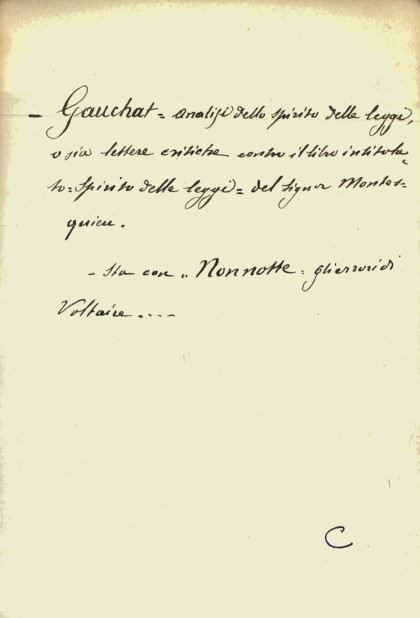 - Gauchat = analisi dello spirito delle leggi,
o sia lettere critiche contro il libro intitola=
to = Spirito delle leggi = del signor Montes=
quieu.
- Sta con „ Nonnotte = gli errori di
Voltaire ....
C